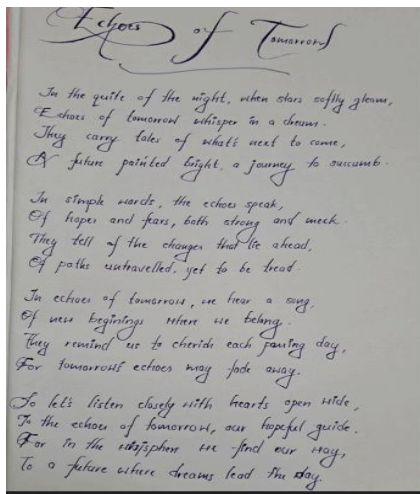 Echoes of Tomorrow
In the quite of the night, when stars softly gleam,
Echoes of tomorrow whisper in a dream.
They carry tales of what's next to come,
A future painted bright, a journey to succumb.
In simple words, the echoes speak,
Of hopes and fears, both strong and meek.
They tell of the changes that lie ahead,
Of paths untravelled, yet to be tread.
In echoes of tomorrow, we hear a song,
Of new beginings where we belong.
They remind us to cherish each passing day,
For tomorrow's echoes may fade away.
So let's listen closely with hearts open wide,
To the echoes of tomorrow, our hopeful guide.
For in the we find our way,
To a future where dreams lead the day.